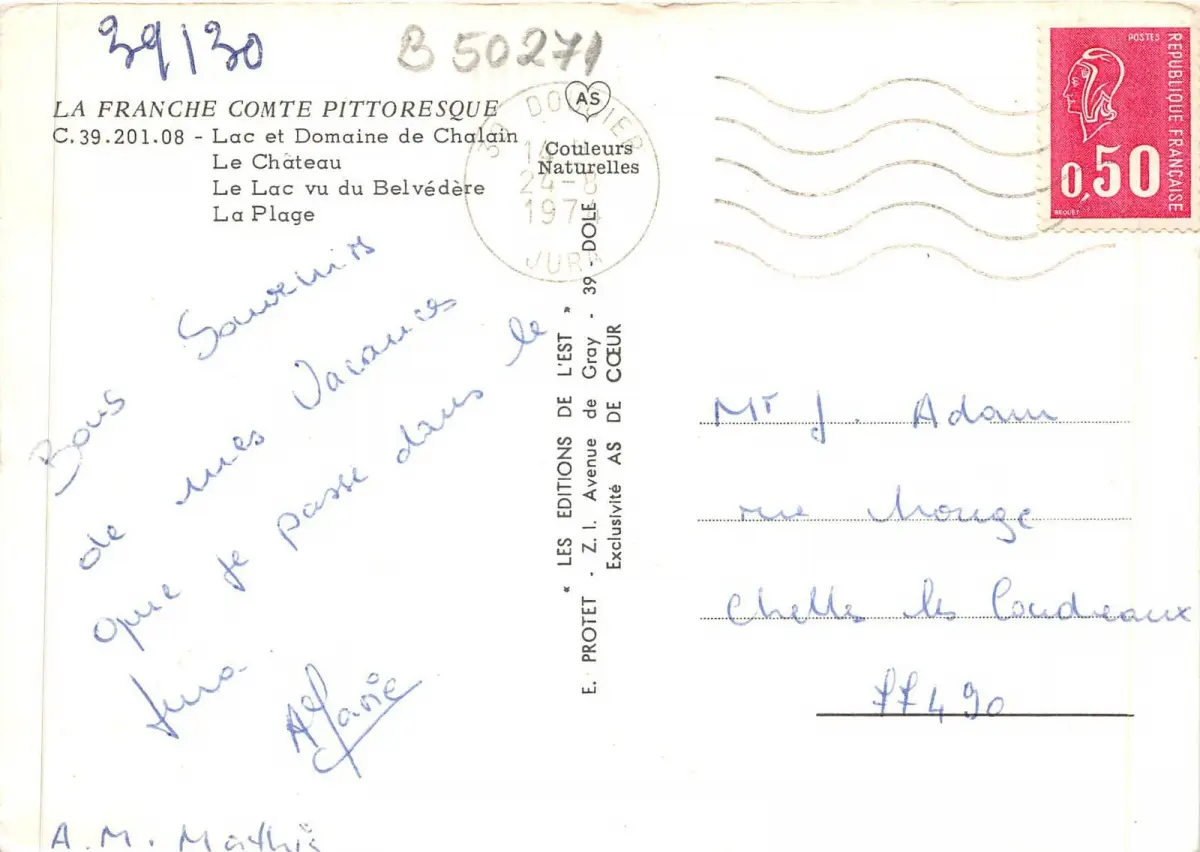 39130
B 50271
LA FRANCHE COMTE PITTORESQUE
C.39.201.08 - Lac et Domaine de Chalain
Le Château
Le Lac vu du Belvédère
La Plage
AS
Couleurs
Naturelles
DOUCIER
24-8
1974
JURA
POSTES
REPUBLIQUE FRANÇAISE
0,50
BEQUET
Bons Souvenirs
de mes Vacances
que je passe dans le
Jura.
AMarie
A.M. Mathis
« LES EDITIONS DE L'EST »
E. PROTET - Z. I. Avenue de Gray - 39 - DOLE
Exclusivité AS DE CŒUR
Mr J. Adam
rue Monge
Chelles les Coudreaux
77490